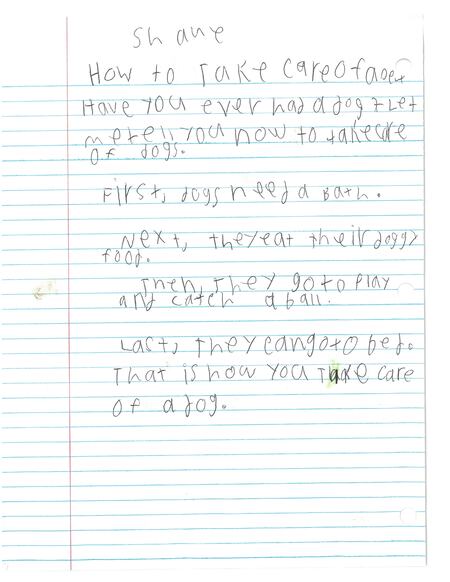 Shane
How to Take Care of a Pet
Have you ever had a dog? Let
me tell you how to take care
of dogs.
First, dogs need a Bath.
Next, they eat their doggy
food.
Then, They go to Play
and catch a ball.
Last, They can go to bed.
That is how you Take care
of a dog.